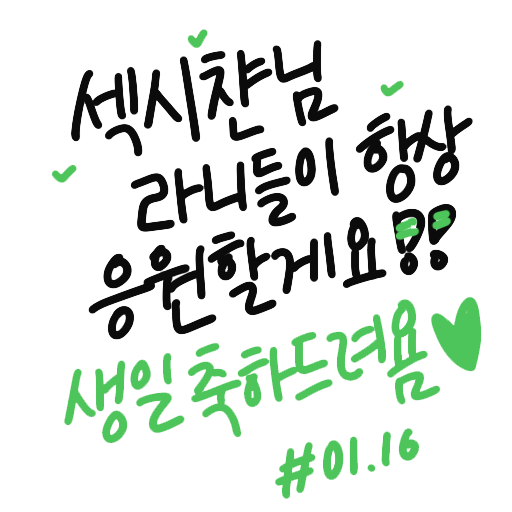 섹시챤님
라니들이 항상
응원할게요!!
생일축하드려욤♥
#01.16